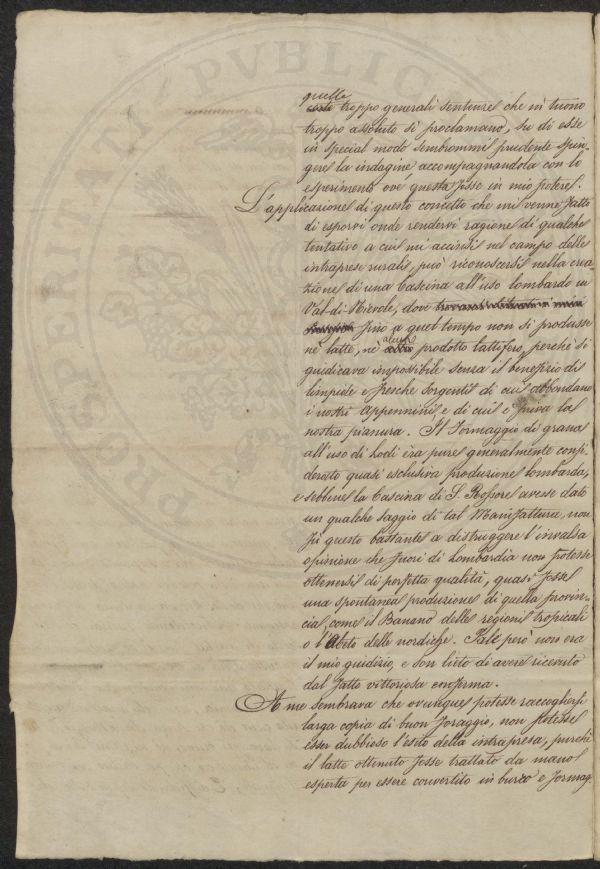 quelle
troppo generali sentenze che in tuono
troppo assoluto si proclamano, su di esse
in special modo sembrommi prudente spin-
gere la indagine accompagnandola con lo
esperimento ove questa fosse in mio potere.
L'applicazione di questo concetto che mi venne fatto
di esporvi onde rendervi ragione di qualche
tentativo a cui mi accinsi nel campo delle
intraprese rurali, può riconoscersi nella crea-
zione di una Cascina all'uso lombardo in
Val-di-Nievole, dove
fino a quel tempo non si produsse
nè latte, nè alcun prodotto lattifero, perchè si
giudicava impossibile senza il benefizio di
limpide e fresche sorgenti di cui abbondano
i nostri appennini, e di cui è priva la
nostra pianura. Il Formaggio di grana
all'uso di Lodi era pure generalmente consi-
derato quasi esclusiva produzione lombarda,
e sebbene la Cascina di S. Rossore avesse dato
un qualche saggio di tal Manifattura, non
fu questo bastante a distruggere l'invalsa
opinione che fuori di Lombardia non potesse
ottenersi di perfetta qualità, quasi fosse
una spontanea produzione di quella provin-
cia, come il Banano delle regioni tropicali
o l'Abeto delle nordiche. Tale però non era
il mio giudizio, e son lieto di avere ricevuto
dal fatto vittoriosa conferma.
A me sembrava che ovunque potesse raccogliersi
larga copia di buon foraggio, non potesse
esser dubbioso l'esito della intrapresa, purchè
il latte ottenuto fosse trattato da mano
esperta per essere convertito in burro e formag-